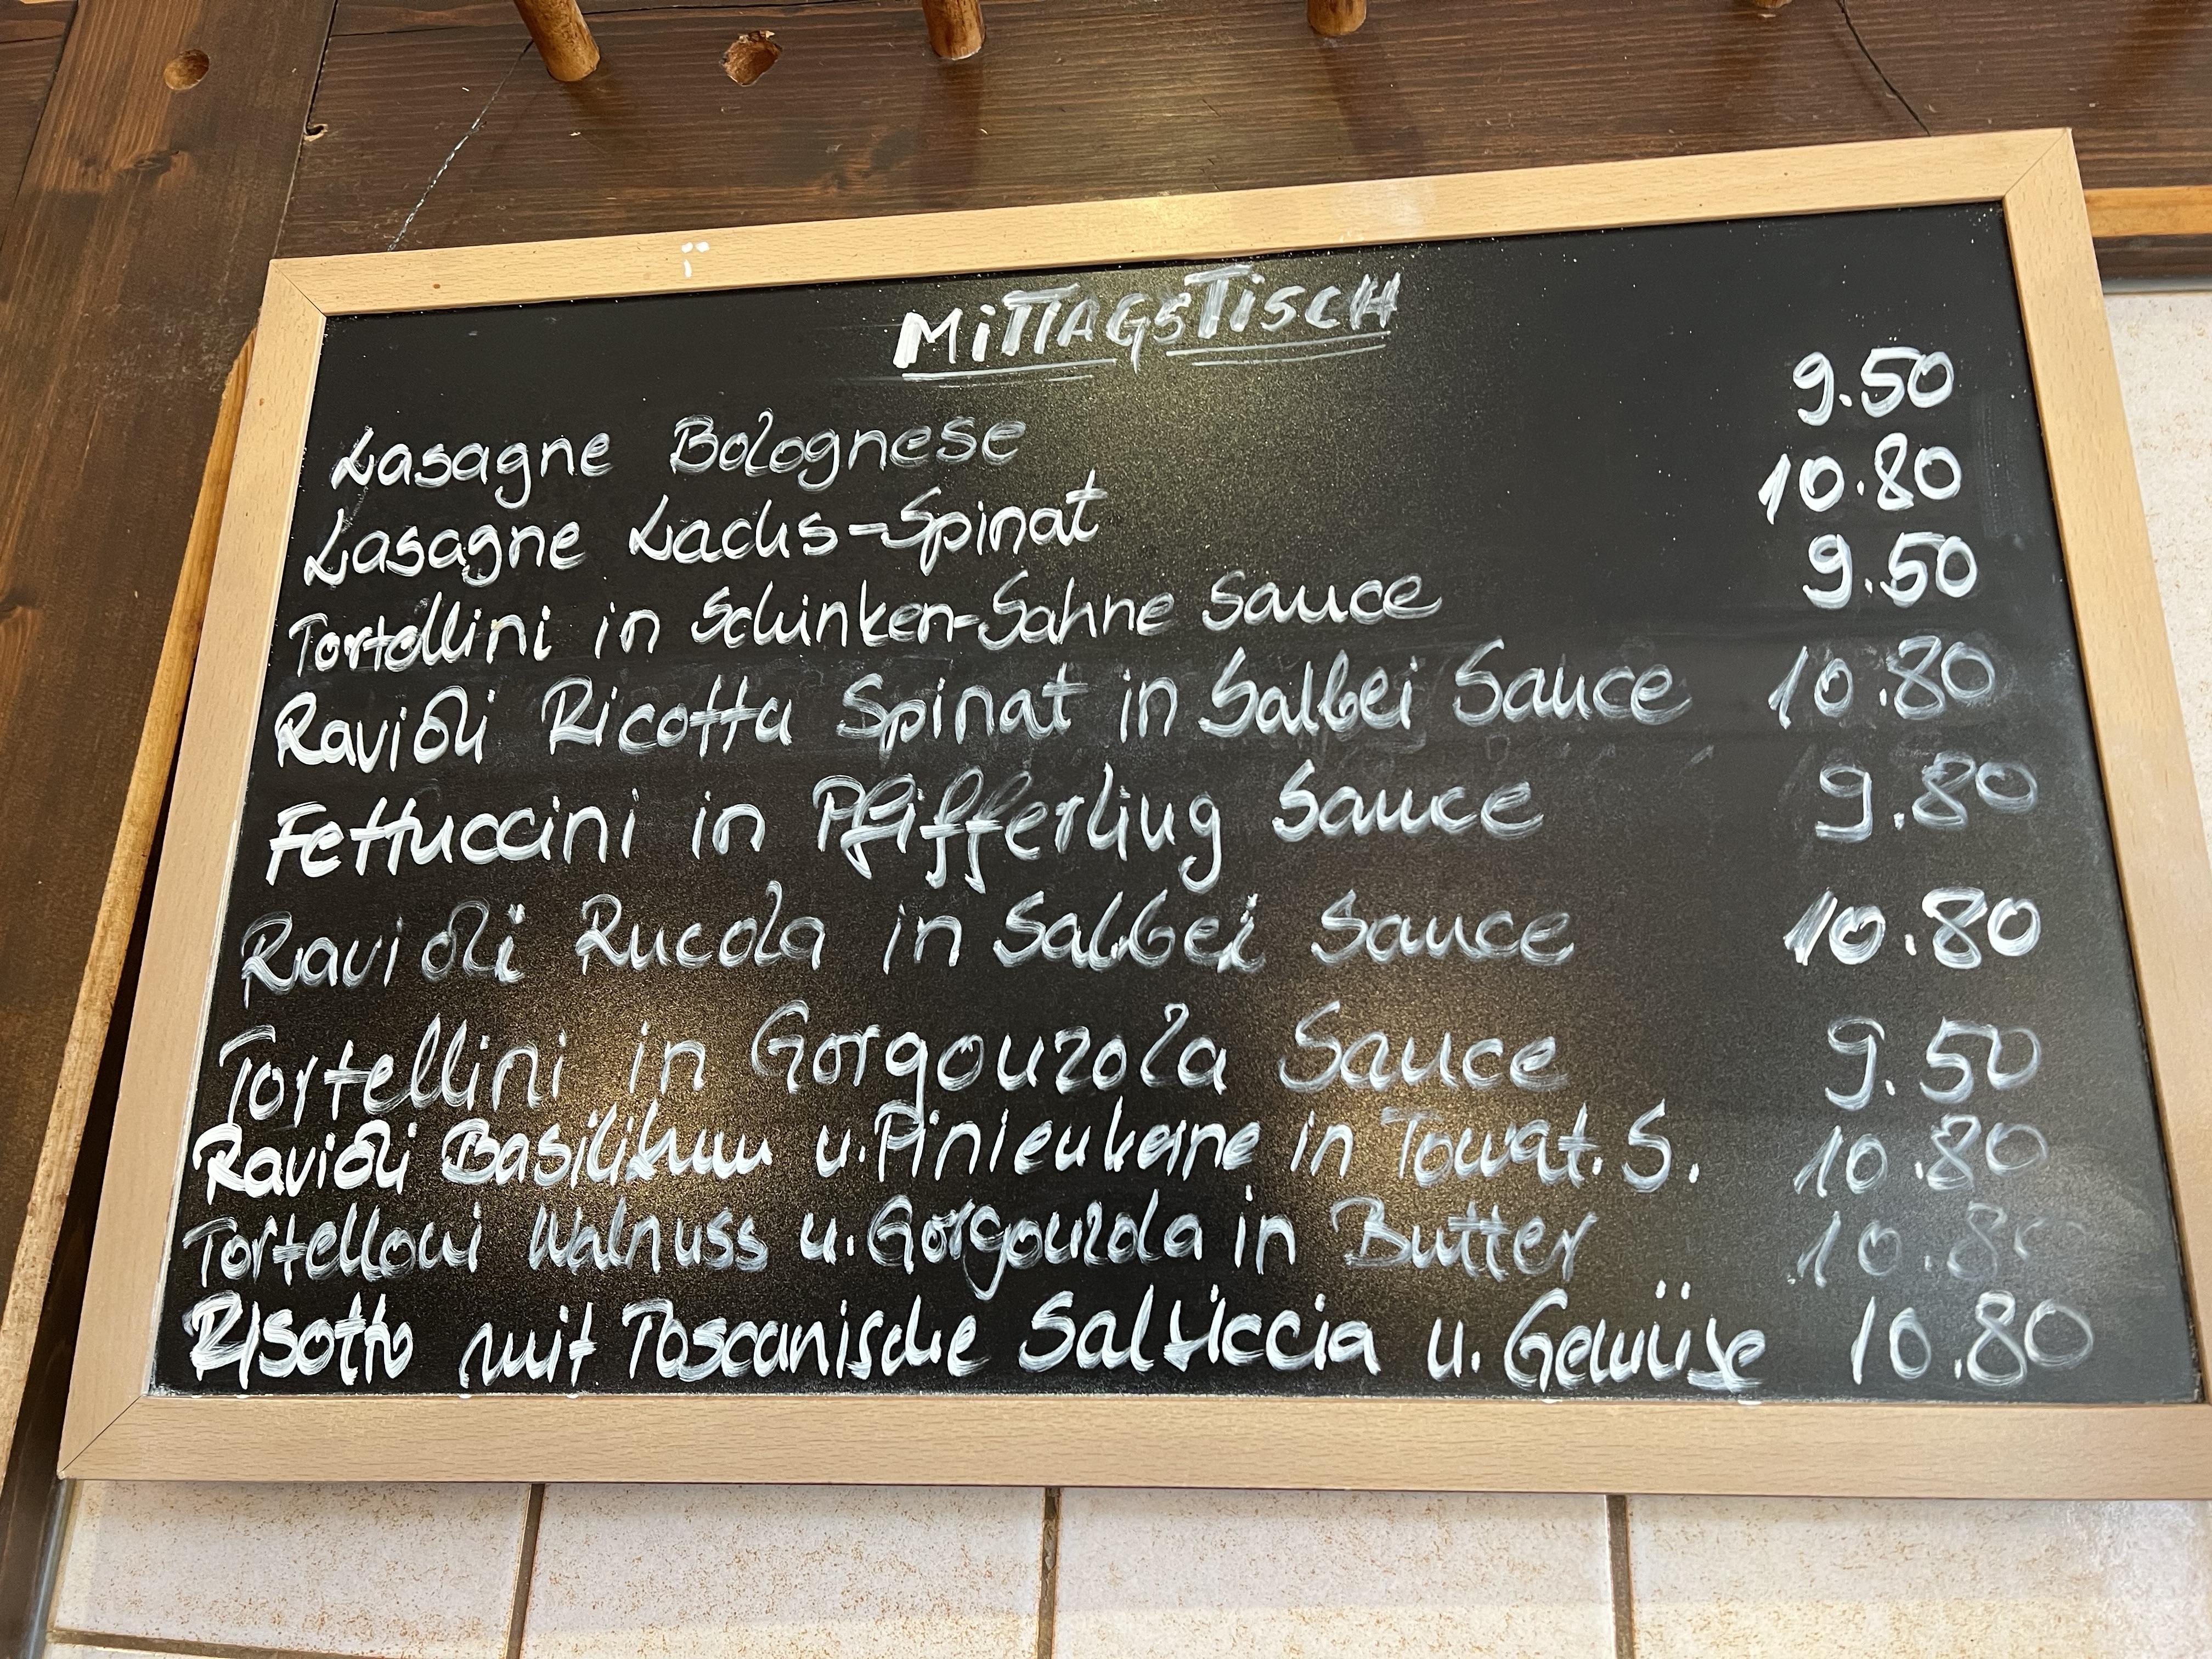 MiTTAGSTiSCH
Lasagne Bolognese 9.50
Lasagne Lachs-Spinat 10.80
Tortellini in Schinken-Sahne Sauce 9.50
Ravioli Ricotta Spinat in Salbei Sauce 10.80
Fettuccini in Pfifferling Sauce 9.80
Ravioli Rucola in Salbei Sauce 10.80
Tortellini in Gorgonzola Sauce 9.50
Ravioli Basilikum u. Pinienkerne in Tomat. S. 10.80
Tortelloni Walnuss u. Gorgonzola in Butter 10.80
Risotto mit Toscanische Salsiccia u. Gemüse 10.80